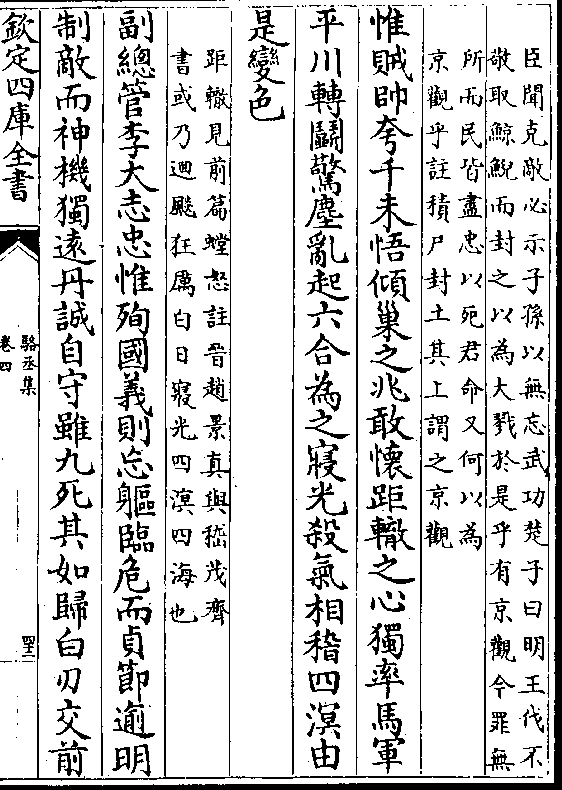 臣聞克敵必示子孫以無忘武功楚子曰明王伐不
敬取鯨鯢而封之以為大戮於是乎有京觀今罪無
所而民皆盡忠以死君命又何以為
京觀乎註積尸封土其上謂之京觀
惟賊帥夸千未悟傾巢之兆敢懷距轍之心獨率馬軍
平川轉鬬驚塵亂起六合為之寢光殺氣相稽四溟由
是變色
距轍見前篇螳怒註晉趙景真與嵇茂齊
書或乃迴飈狂厲白日寢光四溟四海也
副總管李大志忠惟殉國義則忘軀臨危而貞節逾明
制敵而神機獨遠丹誠自守雖九死其如歸白刃交前
欽定四庫全書
駱丞集
卷四